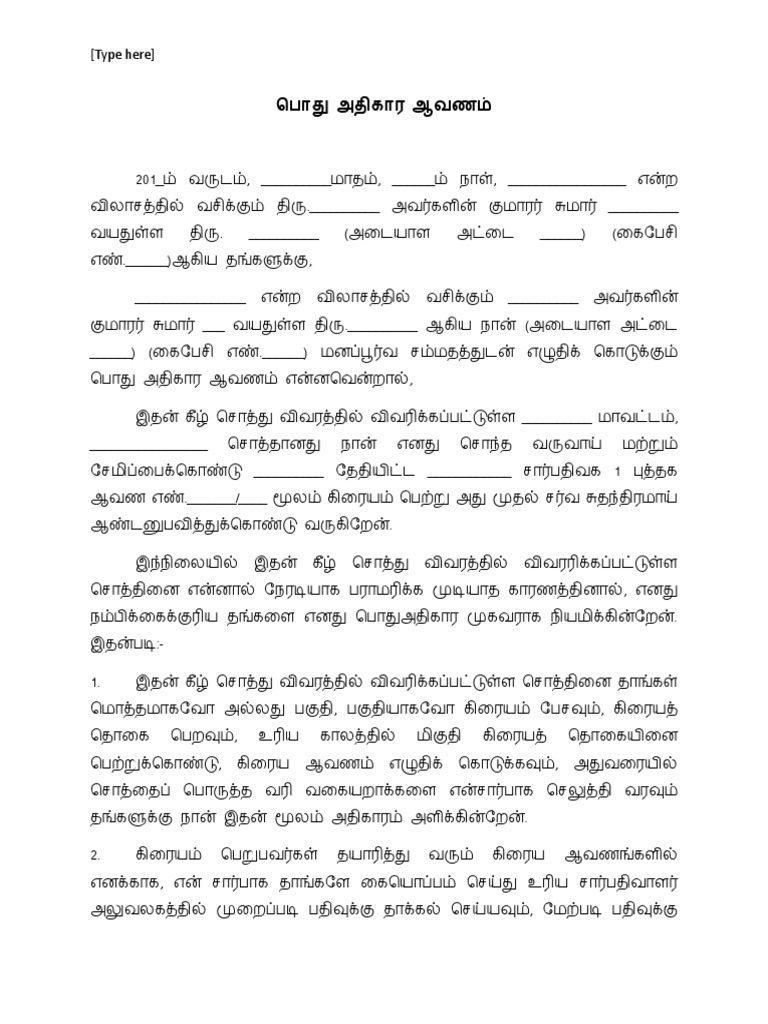 [Type here]
பொது அதிகார ஆவணம்
201_ம் வருடம், __________மாதம், ______ம் நாள், _________________ என்ற
விலாசத்தில் வசிக்கும் திரு.__________ அவர்களின் குமாரர் சுமார் __________
வயதுள்ள திரு. __________ (அடையாள அட்டை ______) (கைபேசி
எண்.______)ஆகிய தங்களுக்கு,
________________ என்ற விலாசத்தில் வசிக்கும் __________ அவர்களின்
குமாரர் சுமார் ___ வயதுள்ள திரு.__________ ஆகிய நான் (அடையாள அட்டை
______) (கைபேசி எண்.______) மனப்பூர்வ சம்மதத்துடன் எழுதிக் கொடுக்கும்
பொது அதிகார ஆவணம் என்னவென்றால்,
இதன் கீழ் சொத்து விவரத்தில் விவரிக்கப்பட்டுள்ள __________ மாவட்டம்,
_________________ சொத்தானது நான் எனது சொந்த வருவாய் மற்றும்
சேமிப்பைக்கொண்டு __________ தேதியிட்ட ____________ சார்பதிவக 1 புத்தக
ஆவண எண்._______/____ மூலம் கிரையம் பெற்று அது முதல் சர்வ சுதந்திரமாய்
ஆண்டனுபவித்துக்கொண்டு வருகிறேன்.
இந்நிலையில் இதன் கீழ் சொத்து விவரத்தில் விவரரிக்கப்பட்டுள்ள
சொத்தினை என்னால் நேரடியாக பராமரிக்க முடியாத காரணத்தினால், எனது
நம்பிக்கைக்குரிய தங்களை எனது பொதுஅதிகார முகவராக நியமிக்கின்றேன்.
இதன்படி:-
1. இதன் கீழ் சொத்து விவரத்தில் விவரிக்கப்பட்டுள்ள சொத்தினை தாங்கள்
மொத்தமாகவோ அல்லது பகுதி, பகுதியாகவோ கிரையம் பேசவும், கிரையத்
தொகை பெறவும், உரிய காலத்தில் மிகுதி கிரையத் தொகையினை
பெற்றுக்கொண்டு, கிரைய ஆவணம் எழுதிக் கொடுக்கவும், அதுவரையில்
சொத்தைப் பொருத்த வரி வகையறாக்களை என்சார்பாக செலுத்தி வரவும்
தங்களுக்கு நான் இதன் மூலம் அதிகாரம் அளிக்கின்றேன்.
2. கிரையம் பெறுபவர்கள் தயாரித்து வரும் கிரைய ஆவணங்களில்
எனக்காக, என் சார்பாக தாங்களே கையொப்பம் செய்து உரிய சார்பதிவாளர்
அலுவலகத்தில் முறைப்படி பதிவுக்கு தாக்கல் செய்யவும், மேற்படி பதிவுக்கு